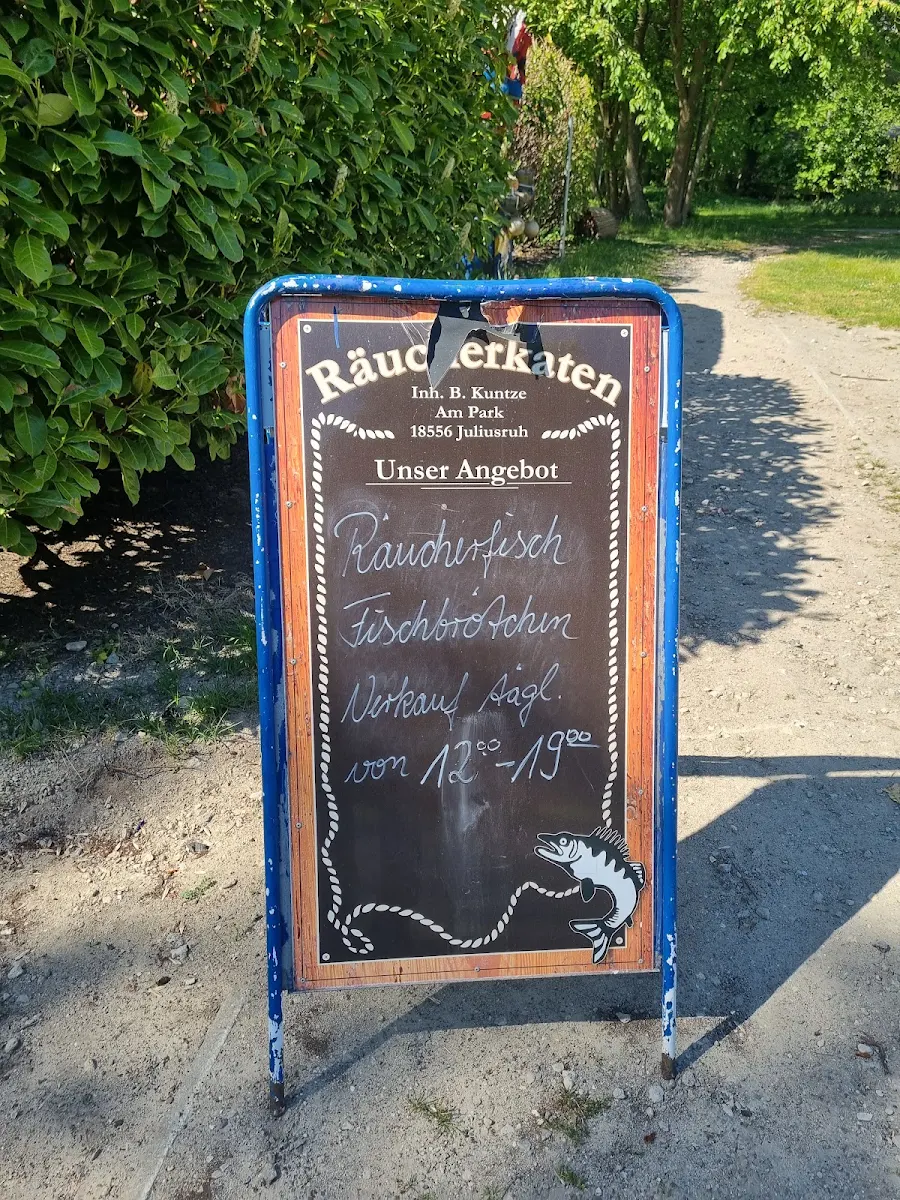 Räucherkaten
Inh. B. Kuntze
Am Park
18556 Juliusruh
Unser Angebot
Räucherfisch
Fischbrötchen
Verkauf tägl.
von 12⁰⁰-19⁰⁰